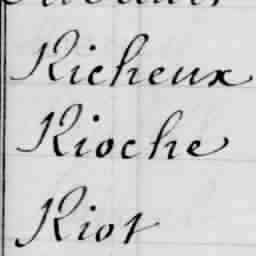 Richeux
Rioche
Riot